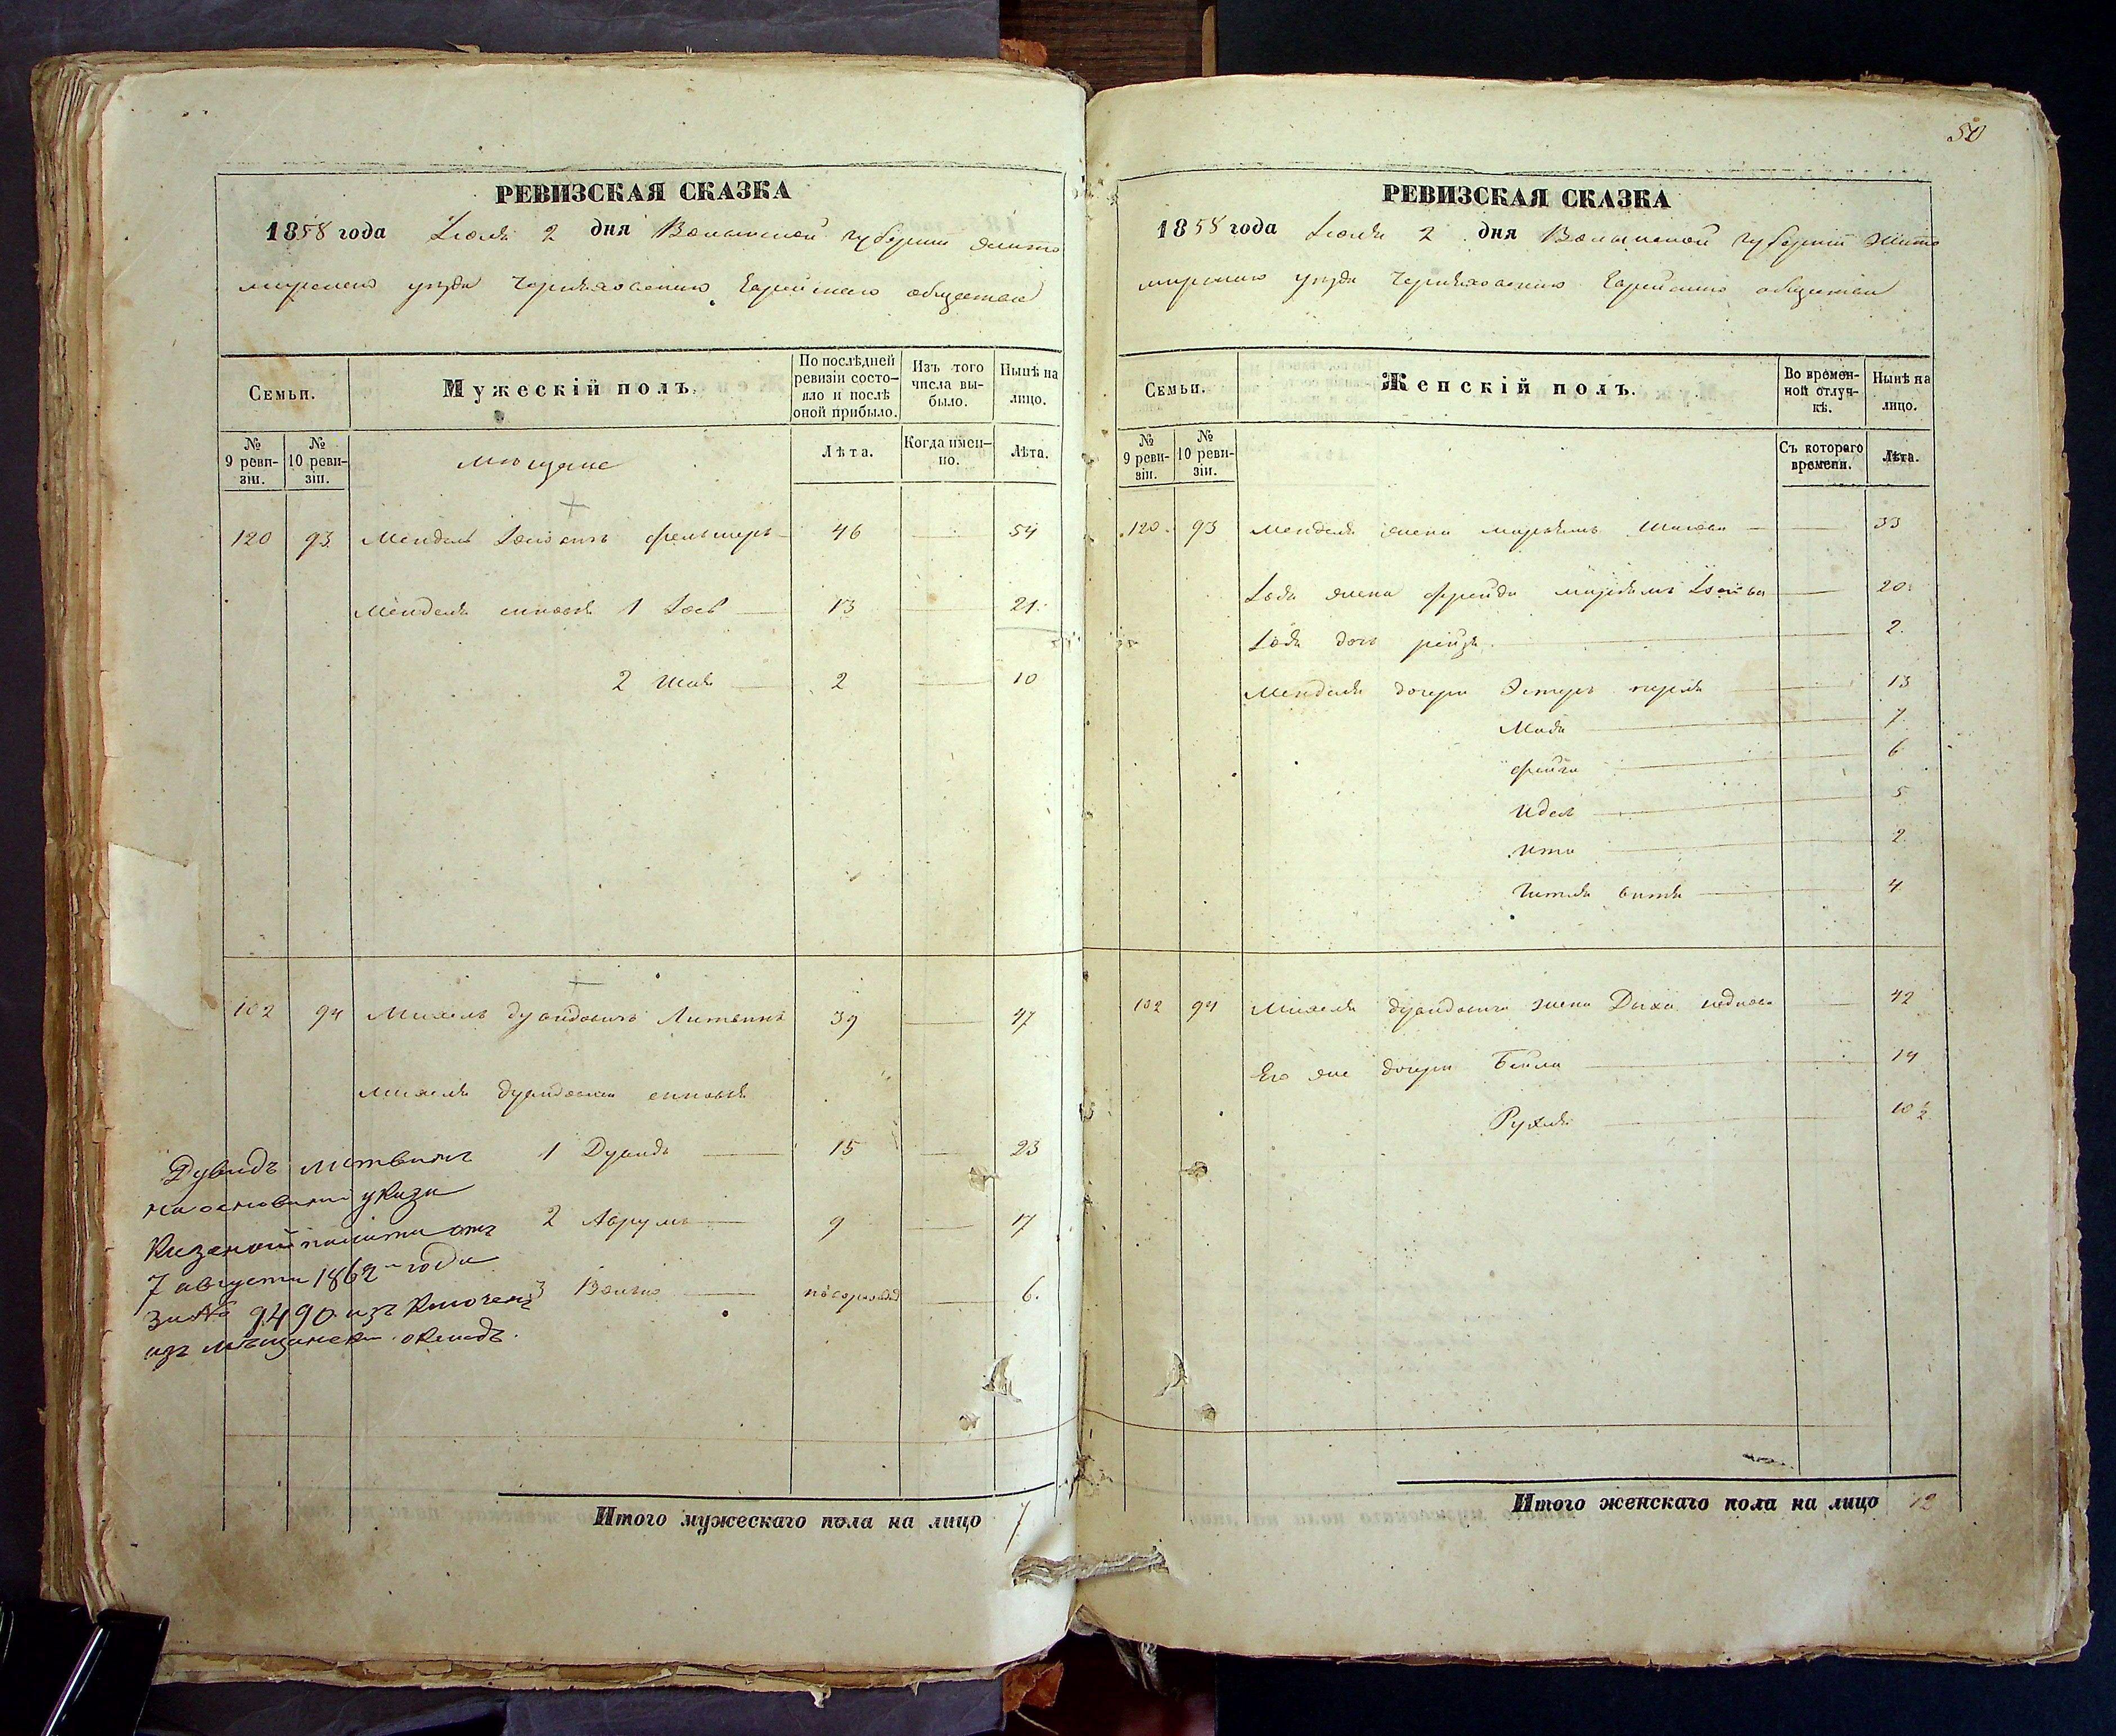 РЕВИЗСКАЯ СКАЗКА
1858 года Iюля 2 дня Волынской губернии Жито
мирскаго уезда Черняховскаго Еврейскаго общества
Семьи.
Мужескій полъ.
По послѣдней
ревизіи состо-
яло и послѣ
оной прибыло.
Изъ того
числа вы-
было.
Нынѣ на
лицо.
№
9 реви-
зіи.
№
10 реви-
зіи.
мещане
Лѣта.
Когда имен-
но.
Лѣта.
120 93 Мендель Iосiовичъ Фельшеръ 46 54
Менделя сыновя 1 Iось 13 21
2 Шая 2 10
102 94 Михель Дувидовичъ Литвинъ 39 47
Михеля Дувидовича сыновя
1 Дувидъ 15 23
2 Аврумъ 9 17
3 Волько 6.
Дувидъ Литвинъ
на основании указа
Казенной палаты отъ
7 августа 1862 года
за № 9490 исключенъ
изъ мѣщанск. окладъ.
Итого мужескаго пола на лицо 7
50
РЕВИЗСКАЯ СКАЗКА
1858 года Iюля 2 дня Волынской губерніи Жито
мирскаго уезда Черняховскаго Еврейскаго общества
Семьи.
Женскій полъ.
Во времен-
ной отлуч-
кѣ.
Нынѣ на
лицо.
№
9 реви-
зіи.
№
10 реви-
зіи.
Съ котораго
времени.
Лѣта.
120 93 Менделя жена Марьямъ Шаiова 33
Iося жена Фрейда Марьямъ 20
Iося дочь Рейзя 2.
Менделя дочери Эстеръ Перля 13
7
Фейга 6
Идес 5
Ита 2
Гитля Битя 4
102 94 Михеля Дувидовича жена Двхо 42
Его же дочери Бейла 14
Рухля 10 ½
Итого женскаго пола на лицо 12